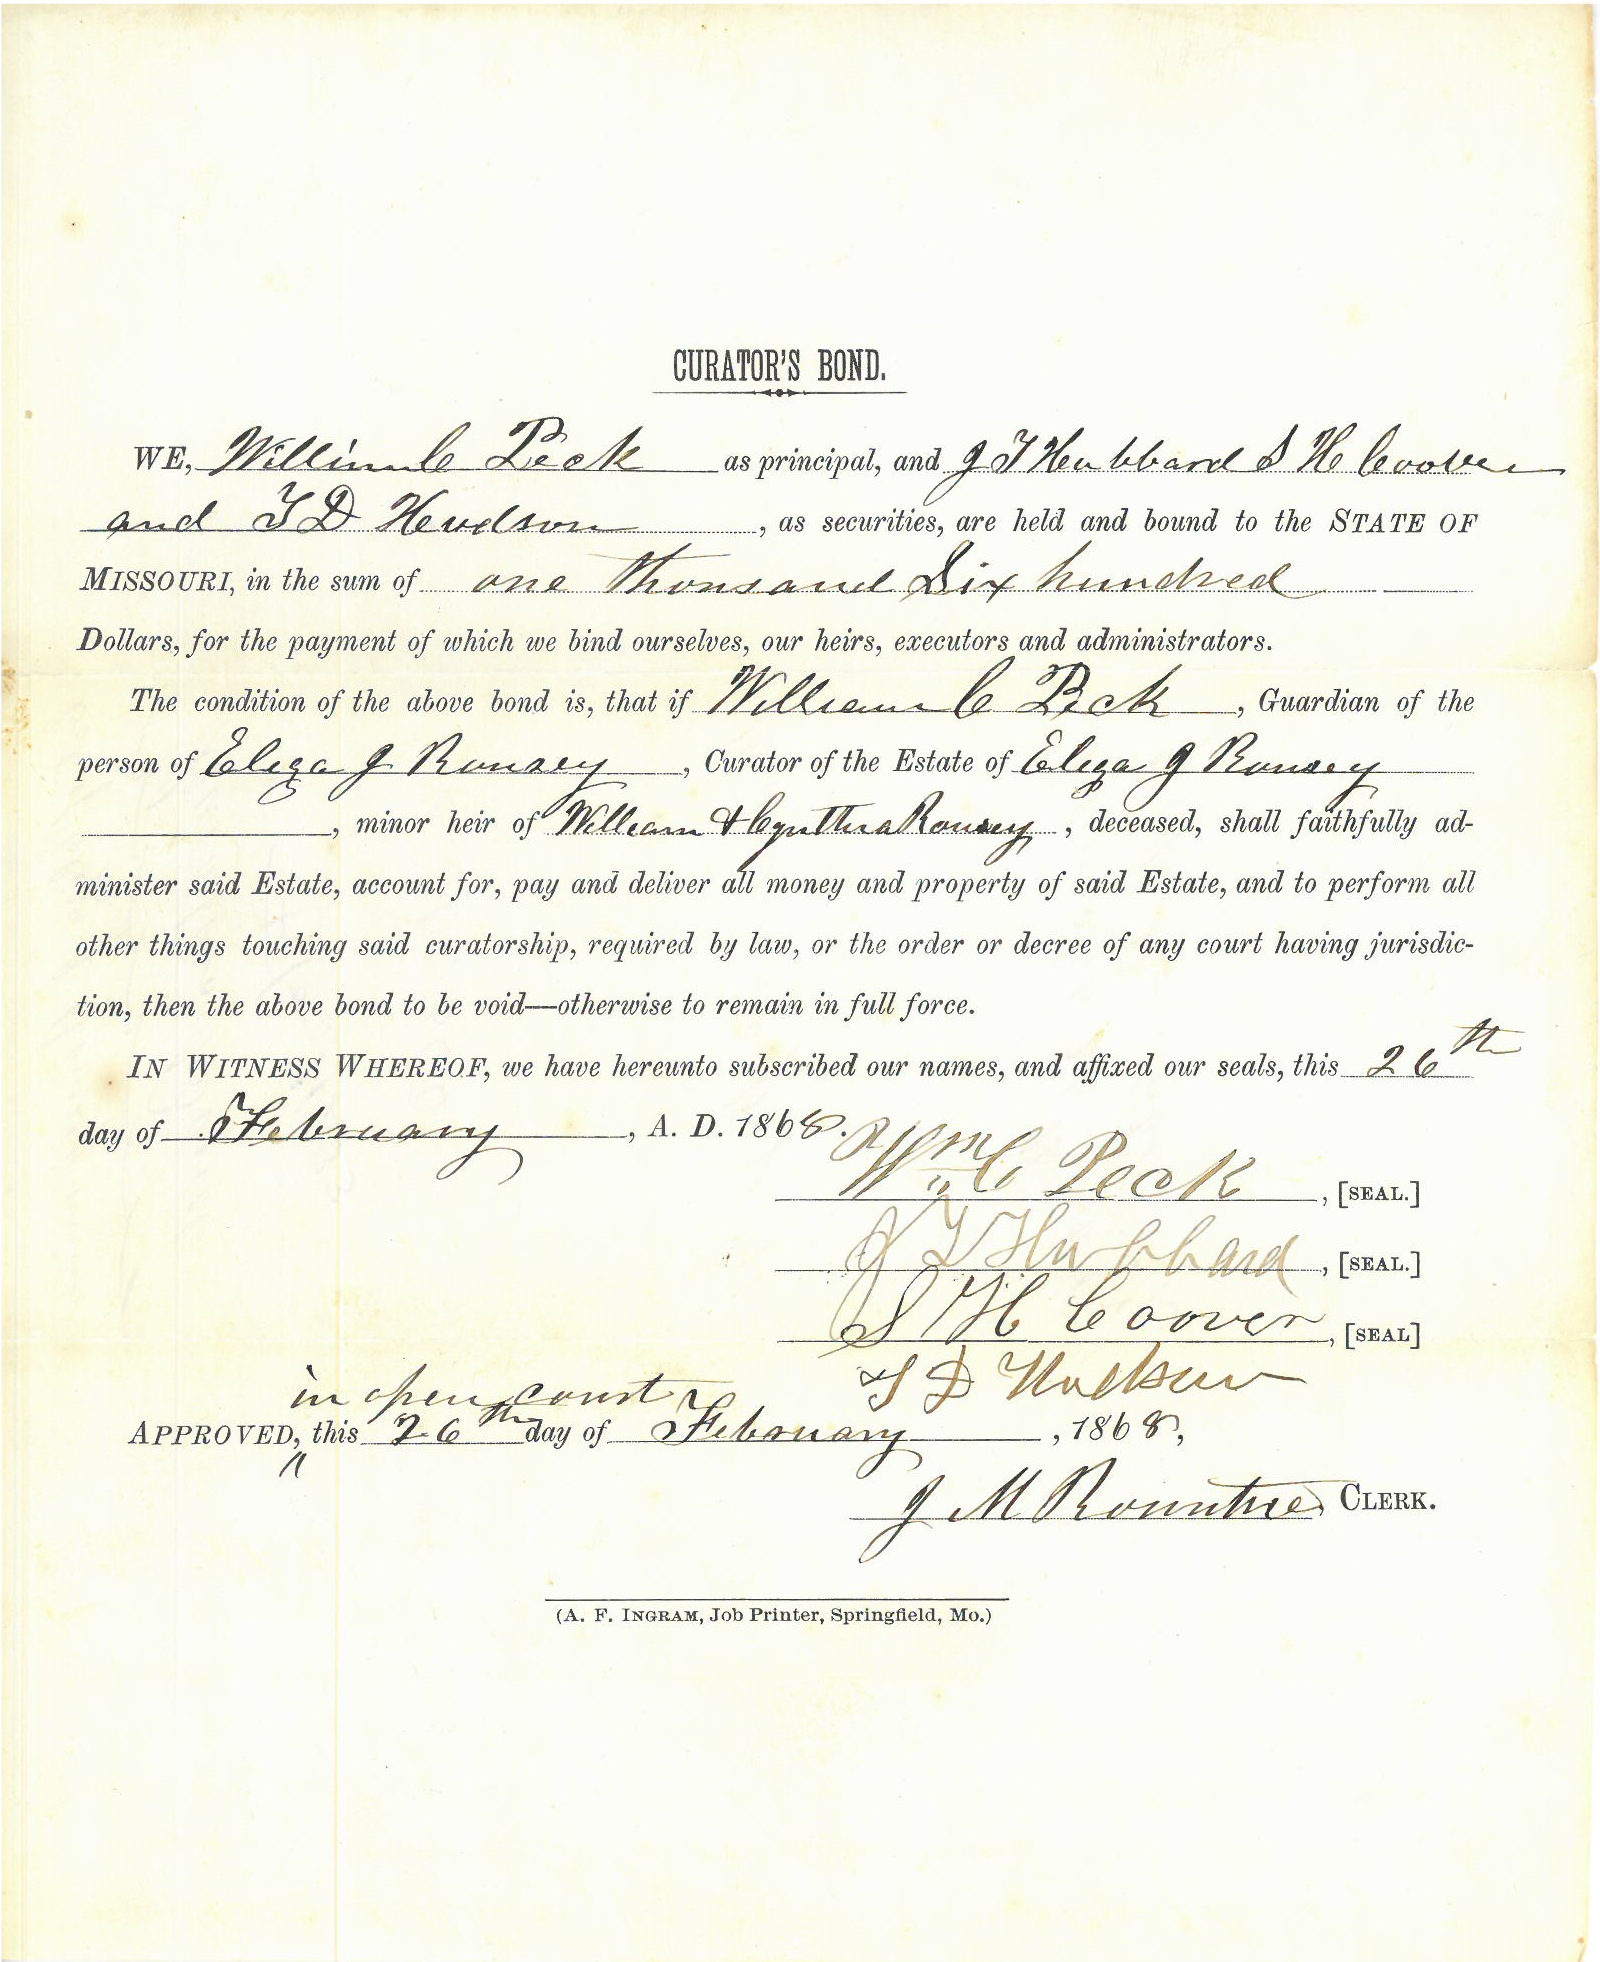 CURATOR'S BOND.
WE, William C Peck as principal, and J T Hubbard S H Coover
and T D Hudson, as securities, are held and bound to the STATE OF
MISSOURI, in the sum of one thousand Six hundred
Dollars, for the payment of which we bind ourselves, our heirs, executors and administrators.
The condition of the above bond is, that if William C Peck, Guardian of the
person of Eliza J Rousey, Curator of the Estate of Eliza J Rousey
, minor heir of William & Cynthia Rousey, deceased, shall faithfully ad-
minister said Estate, account for, pay and deliver all money and property of said Estate, and to perform all
other things touching said curatorship, required by law, or the order or decree of any court having jurisdic-
tion, then the above bond to be void—otherwise to remain in full force.
IN WITNESS WHEREOF, we have hereunto subscribed our names, and affixed our seals, this 26th
day of February, A. D. 1868.
Wm C Peck, [SEAL.]
J T Hubbard, [SEAL.]
S H Coover, [SEAL]
T D Hudson
in open court
APPROVED, this 26th day of February, 1868,
J M Rountree CLERK.
(A. F. INGRAM, Job Printer, Springfield, Mo.)